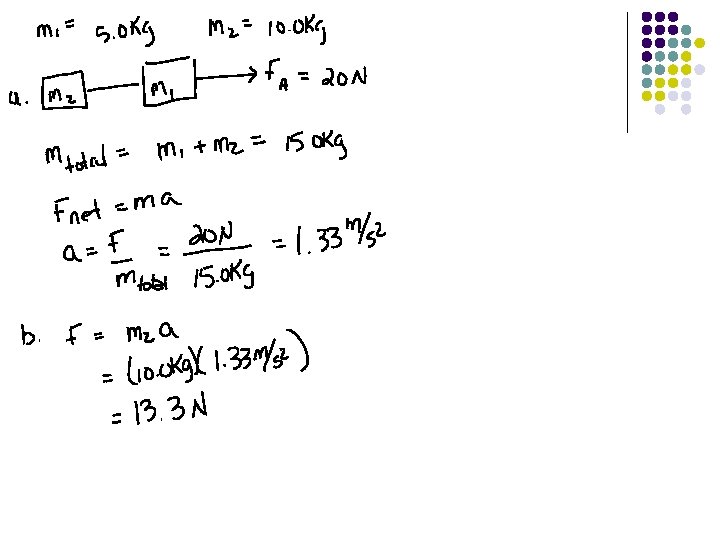 m₁ = 5.0kg m₂ = 10.0kg
a. m₂ m₁ → F_A = 20N
m_total = m₁ + m₂ = 15.0kg
F_net = ma
a = F/m_total = 20N/15.0kg = 1.33 m/s²
b. F = m₂a
= (10.0kg)(1.33 m/s²)
= 13.3N